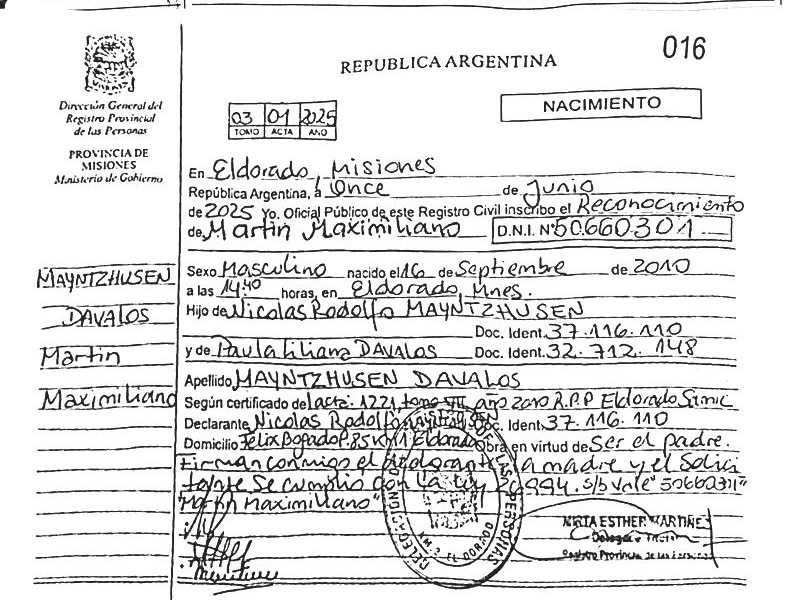 016
REPUBLICA ARGENTINA
Dirección General del
Registro Provincial
de las Personas
PROVINCIA DE
MISIONES
Ministerio de Gobierno
NACIMIENTO
03 01 2025
TOMO ACTA AÑO
En Eldorado, Misiones
República Argentina, a Once de Junio
de 2025 Yo. Oficial Público de este Registro Civil inscribo el Reconocimiento
de Martin Maximiliano D.N.I. N° 50.660.301
MAYNTZHUSEN
DAVALOS
Martin
Maximiliano
Sexo Masculino nacido el 16 de Septiembre de 2010
a las 14,40 horas, en Eldorado, Mnes.
Hijo de Nicolas Rodolfo MAYNTZHUSEN
Doc. Ident. 37.116.110
y de Paula Liliana DAVALOS Doc. Ident. 32.712.148
Apellido MAYNTZHUSEN DAVALOS
Según certificado de acta: 1221, tomo VII año 2010 R.P.P Eldorado
Declarante Nicolas Rodolfo Doc. Ident. 37.116.110
Domicilio Felix Bogado Eldorado Obra en virtud de Ser el padre.
Firman conmigo el la madre y el Solici
tante Se cumplio con la Ley s/b Vale "50660301"
"Martin Maximiliano"
DELEGACION DE LAS PERSONAS
KM. 2 EL DORADO
MIRTA ESTHER MARTINEZ
Delegada Titular
Registro Provincial de las Personas